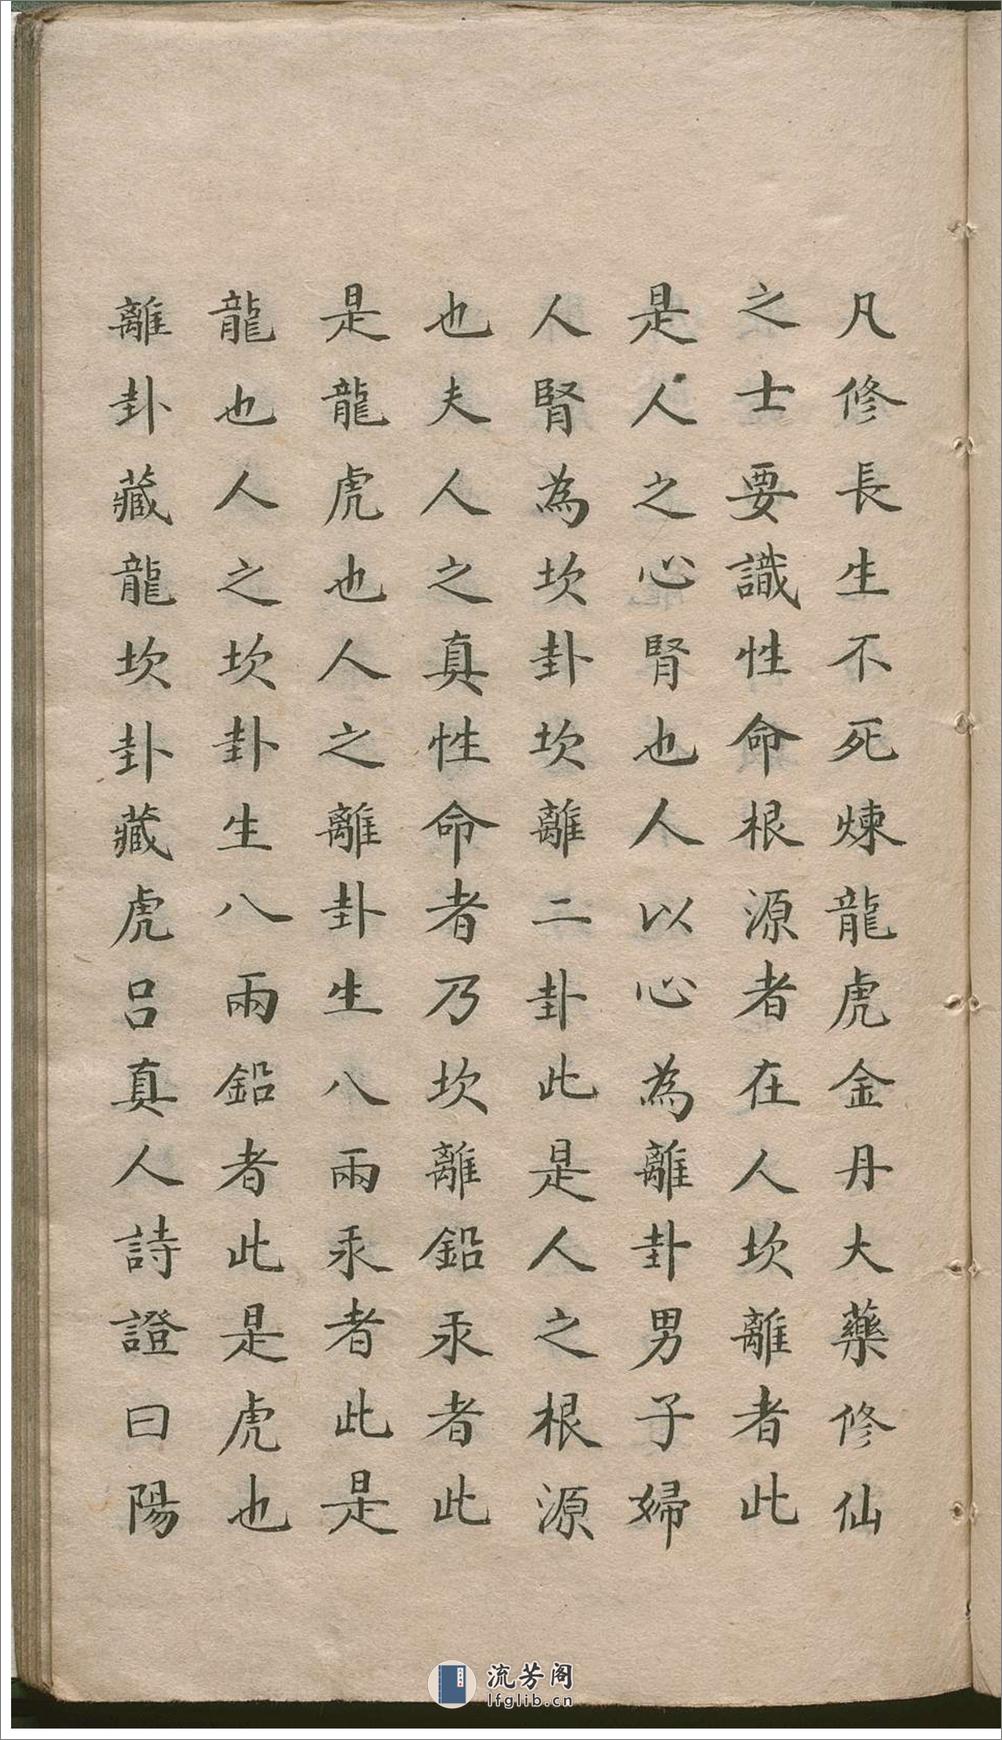 凡修長生不死煉龍虎金丹大藥修仙
之士要識性命根源者在人坎離者此
是人之心腎也人以心為離卦男子婦
人腎為坎卦坎離二卦此是人之根源
也夫人之真性命者乃坎離鉛汞者此
是龍虎也人之離卦生八兩汞者此是
龍也人之坎卦生八兩鉛者此是虎也
離卦藏龍坎卦藏虎呂真人詩證曰陽
流芳阁
lfglib.cn